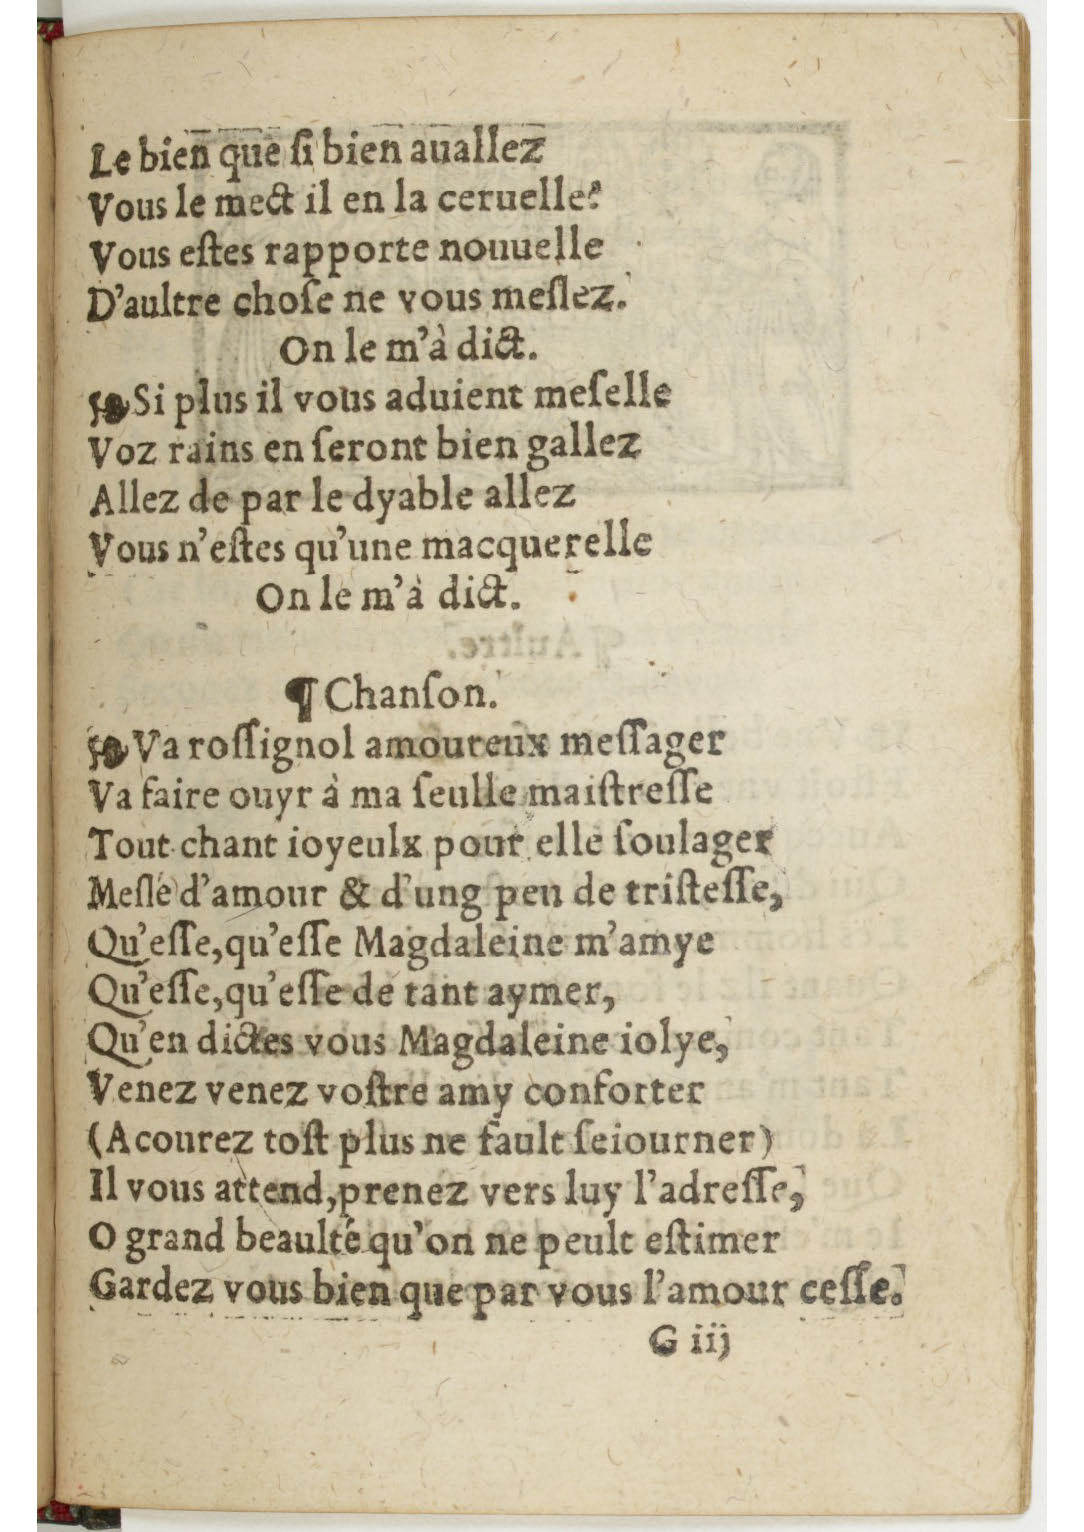 Le bien que ſi bien auallez
Vous le mect il en la ceruelle?
Vous eſtes rapporte nouuelle
D'aultre choſe ne vous meſlez.
On le m'à dict.
❧Si plus il vous aduient meſelle
Voz rains en ſeront bien gallez
Allez de par le dyable allez
Vous n'eſtes qu'une macquerelle
On le m'à dict.
¶ Chanſon.
❧Va roſſignol amoureux meſſager
Va faire ouyr à ma ſeulle maiſtreſſe
Tout chant ioyeulx pour elle ſoulager
Meſlé d'amour & d'ung peu de triſteſſe,
Qu'eſſe,qu'eſſe Magdaleine m'amye
Qu'eſſe,qu'eſſe de tant aymer,
Qu'en dictes vous Magdaleine iolye,
Venez venez voſtre amy conforter
(Acourez toſt plus ne fault ſeiourner)
Il vous attend,prenez vers luy l'adreſſe,
O grand beaulté qu'on ne peult eſtimer
Gardez vous bien que par vous l'amour ceſſe.
G iij